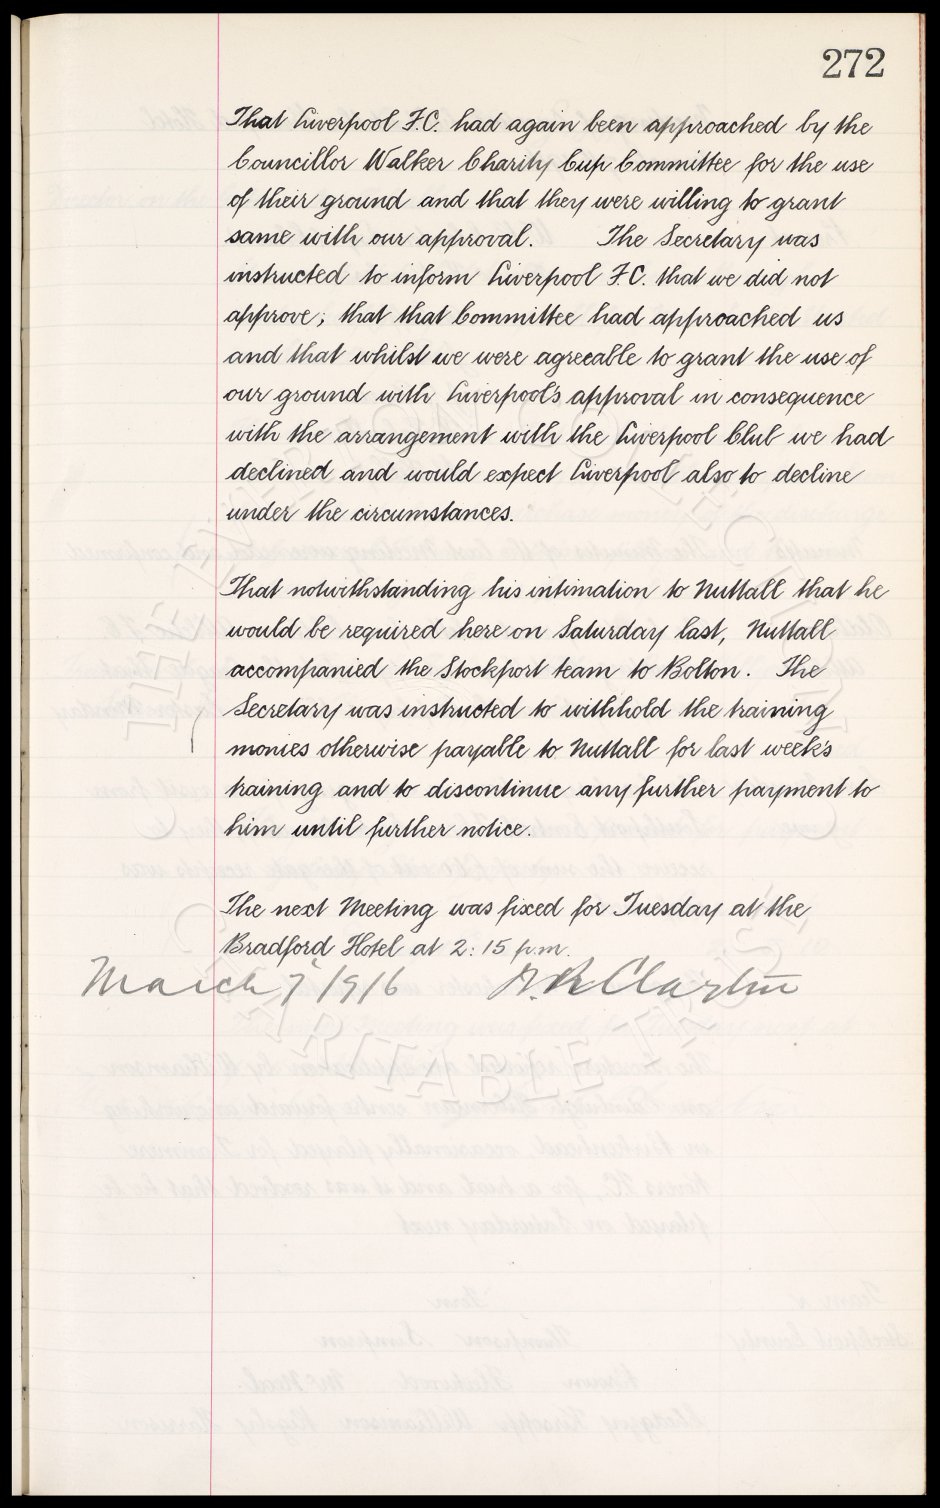 272
That Liverpool F.C. had again been approached by the
Councillor Walker Charity Cup Committee for the use
of their ground and that they were willing to grant
same with our approval. The Secretary was
instructed to inform Liverpool F.C. that we did not
approve; that that Committee had approached us
and that whilst we were agreeable to grant the use of
our ground with Liverpool's approval in consequence
with the arrangement with the Liverpool Club we had
declined and would expect Liverpool also to decline
under the circumstances.
That notwithstanding his intimation to Nuttall that he
would be required here on Saturday last, Nuttall
accompanied the Stockport team to Bolton. The
Secretary was instructed to withhold the training
monies otherwise payable to Nuttall for last week's
training and to discontinue any further payment to
him until further notice.
The next Meeting was fixed for Tuesday at the
Bradford Hotel at 2:15 p.m.
March 7 1916 Clayton
THE EVERTON COLLECTION
CHARITABLE TRUST